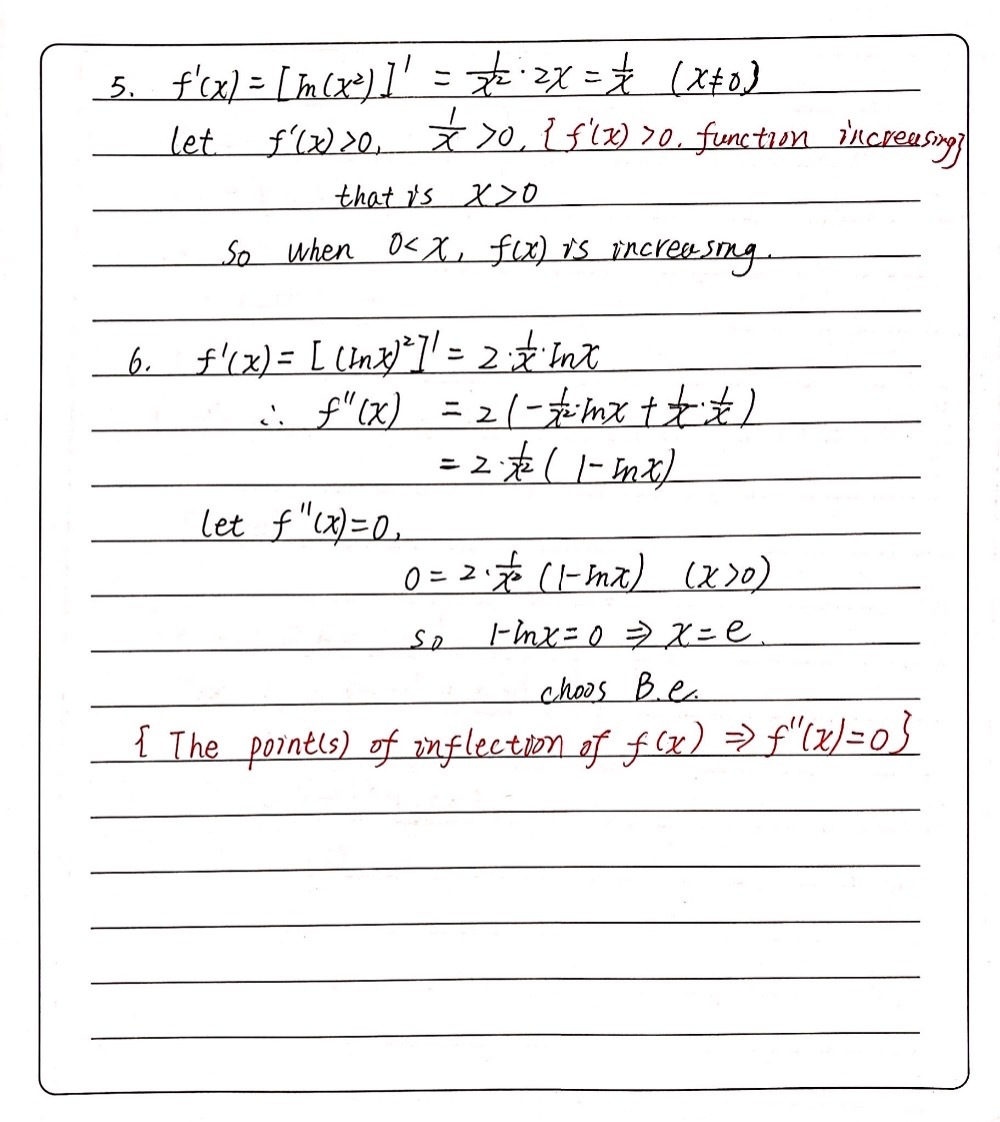 5. f'(x) = [ln(x²)]' = 1/x² · 2x = 1/x (x≠0)
let f'(x)>0, 1/x >0, {f'(x)>0, function increasing}
that is x>0
So when 0<x, f(x) is increasing.
6. f'(x) = [(lnx)²]' = 2·1/x·lnx
∴ f''(x) = 2(-1/x²·lnx + 1/x·1/x)
= 2·1/x² (1-lnx)
let f''(x)=0,
0 = 2·1/x² (1-lnx) (x>0)
so 1-lnx=0 ⇒ x=e.
choos B.e.
{ The point(s) of inflection of f(x) ⇒ f''(x)=0}